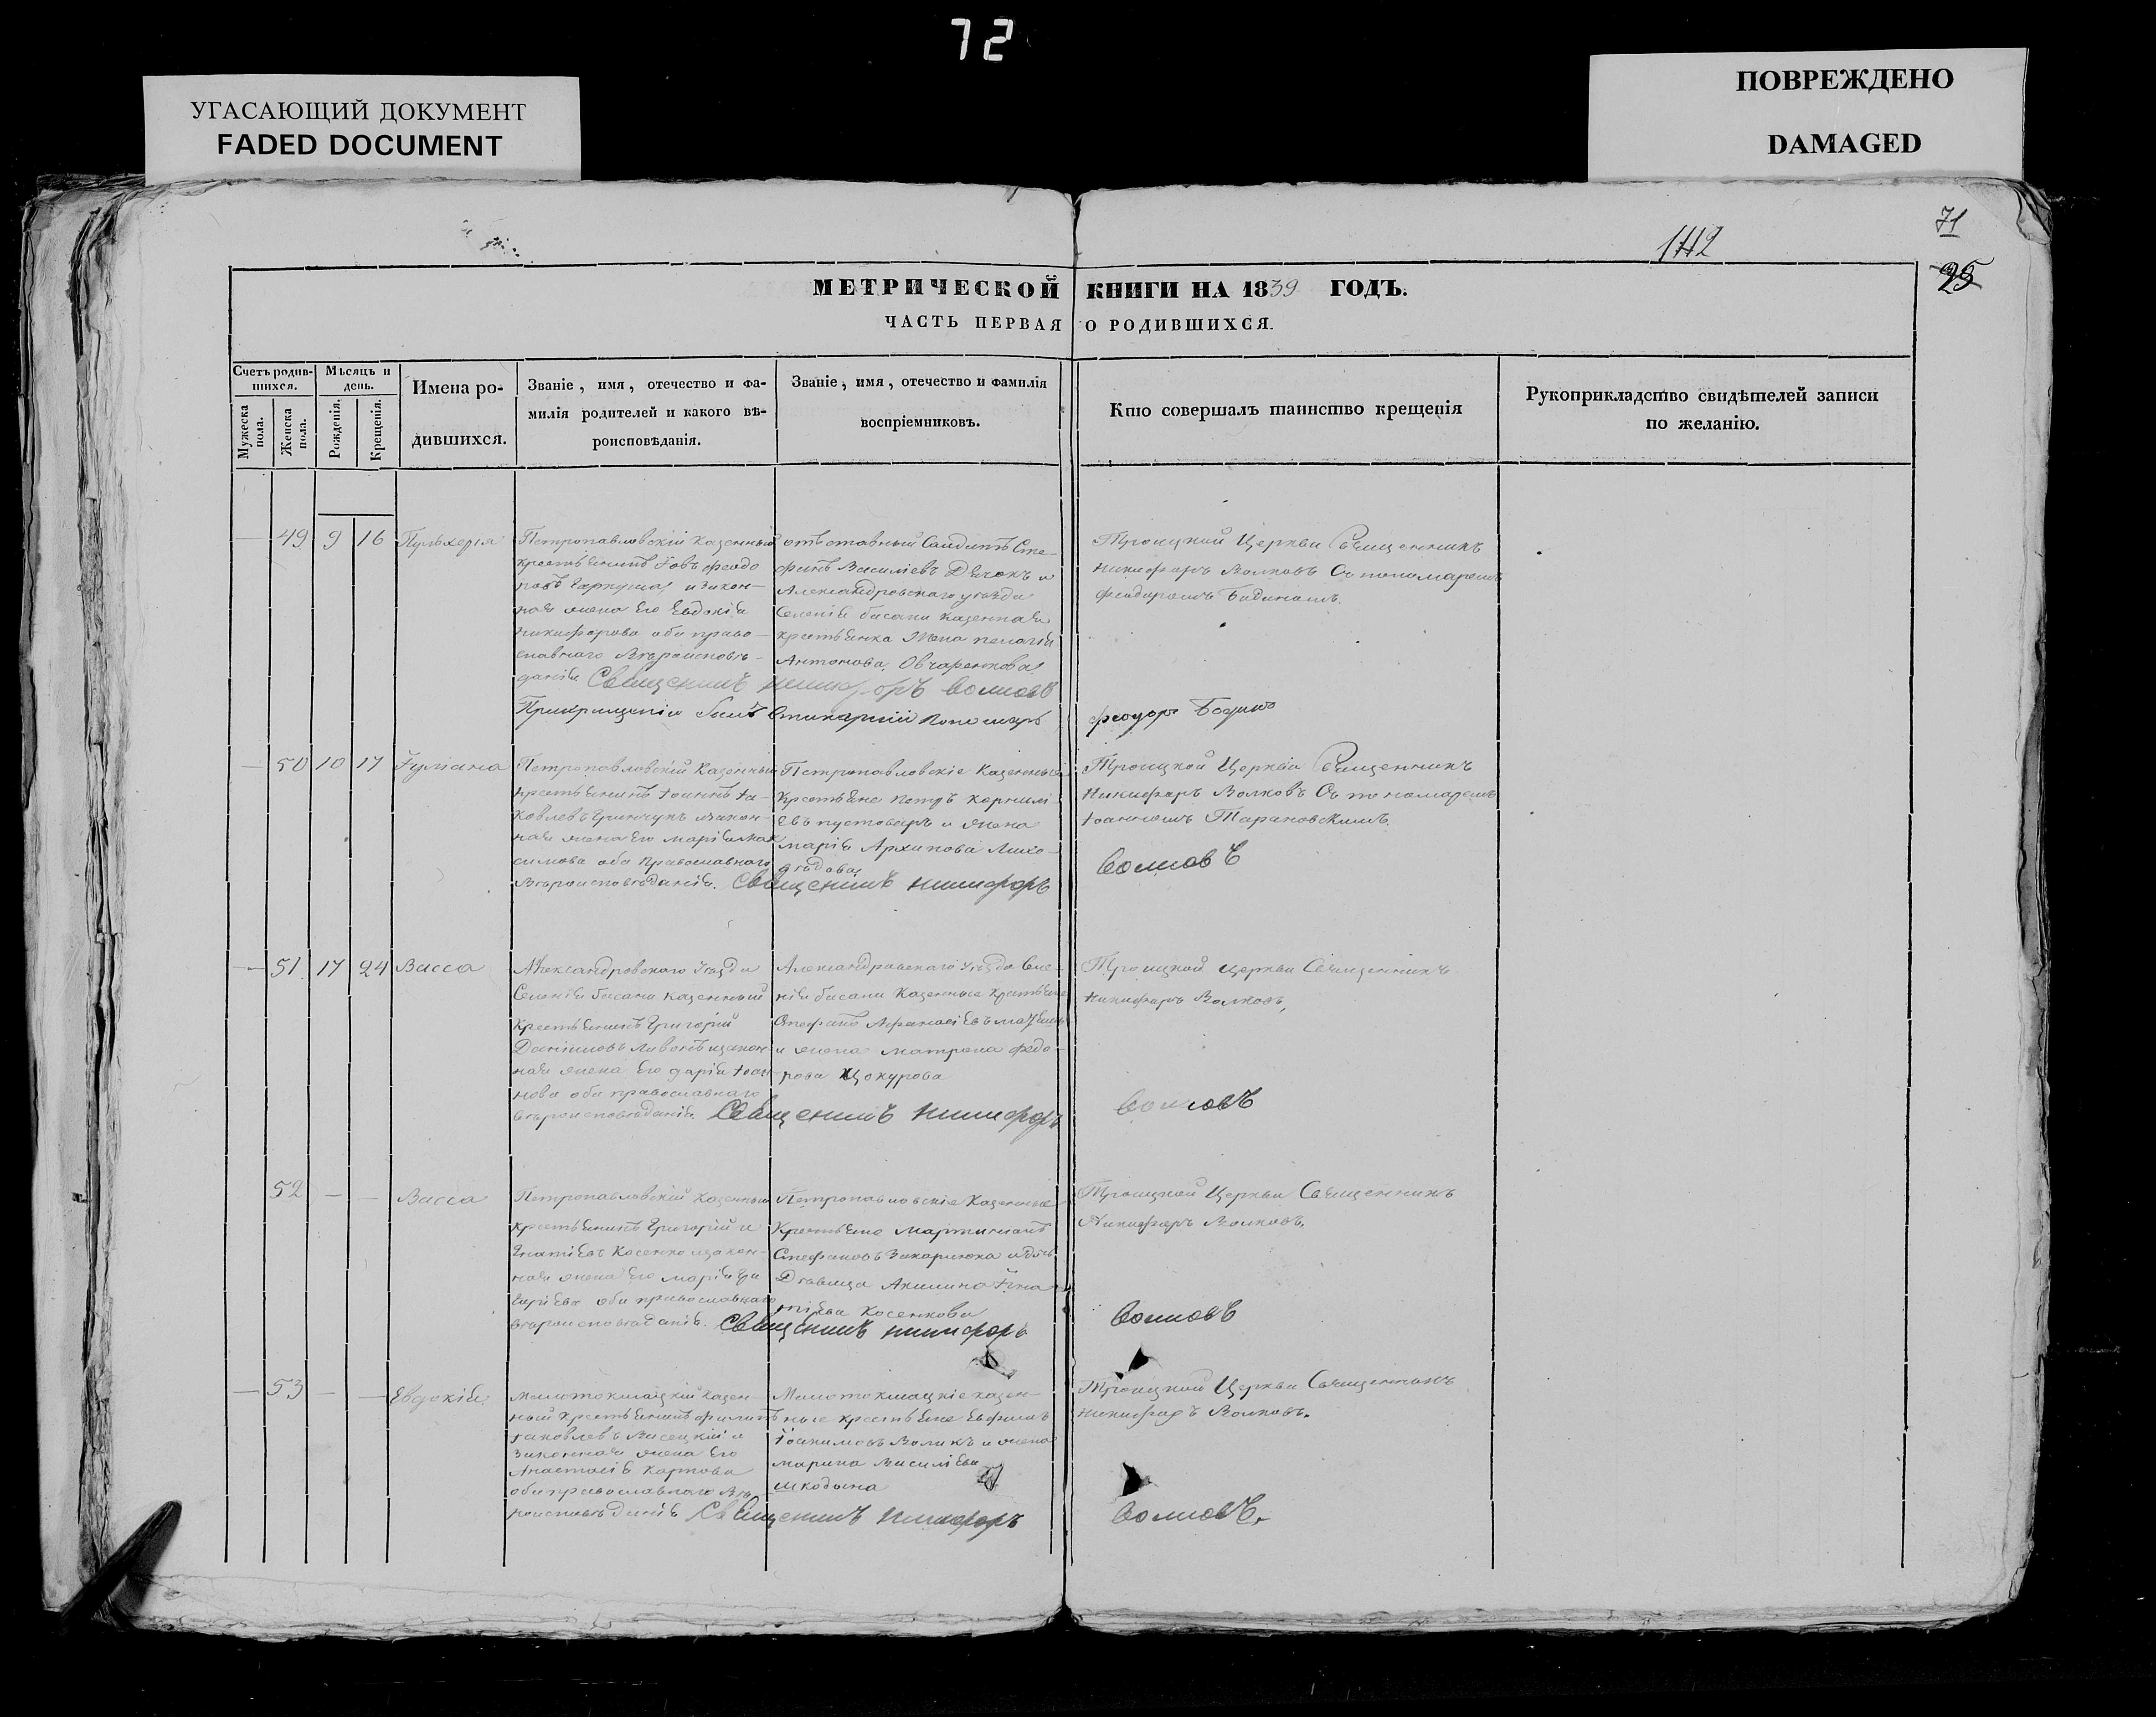 72
УГАСАЮЩИЙ ДОКУМЕНТ
FADED DOCUMENT
ПОВРЕЖДЕНО
DAMAGED
71
1142
25
МЕТРИЧЕСКОЙ КНИГИ НА 1839 ГОДЪ.
ЧАСТЬ ПЕРВАЯ О РОДИВШИХСЯ.
Счетъ родив-
шихся.
Мужеска пола.
Женска пола.
Мѣсяць и
день.
Рожденія.
Крещенія.
Имена ро-
дившихся.
Званіе, имя, отечество и фа-
милія родителей и какого вѣ-
роисповѣданія.
Званіе, имя, отечество и фамилія
воспріемниковъ.
Кто совершалъ таинство крещенія
Рукоприкладство свидѣтелей записи
по желанію.
— 49 9 16 Пульхерія
Петропавловскій Казенный
крестьянинъ Іовъ Феодо
ровъ Гаркуша и закон-
ная жена его Евдокія
Никифорова оба право-
славнаго вѣроисповѣ-
данія Священникъ Никифоръ Волковъ
отъставный Солдатъ Сте-
фанъ Василіевъ Дьячокъ и
Александровскаго уѣзда
Селенія басани казенная
крестьянка жена пелагія
Антонова Овчаренкова
Троицкой Церкви Священникъ
Никифоръ Волковъ Съ пономаремъ
Феодоромъ Бодинымъ.
При крещеніи былъ Стихарный Пономарь Феодоръ Бодинъ
— 50 10 17 Іуліана
Петропавловскій Казенный
крестьянинъ Іоаннъ Іа-
ковлевъ Гринчукъ и закон-
ная жена его Марія Мак
симова оба православнаго
вѣроисповѣданія. Священникъ Никифоръ
Петропавловскіе Казенные
Крестьяне Петръ Корнилі-
евъ пустоваръ и жена
марія Архипова Лихо-
дѣдова
Троицкой Церкви Священникъ
Никифоръ Волковъ Съ пономаремъ
Іоанномъ Тарановскимъ.
Волковъ
— 51 17 24 Васса
Александровскаго Уѣзда
Селенія басани казенный
крестьянинъ Григорій
Даніиловъ и закон
ная жена его дарія Іоан
нова оба православнаго
вѣроисповѣданія. Священникъ Никифоръ
Александровскаго Уѣзда Селе-
нія басани Казенные крестьяне
Стефанъ Афанасіевъ
и жена матрона Федо-
рова Цокурова
Троицкой Церкви Священникъ
Никифоръ Волковъ,
Волковъ
52 — — Васса
Петропавловскій Казенный
крестьянинъ Григорій И
гнатіевъ Косенко и закон-
ная жена его марія Гри
горіева оба православнаго
вѣроисповѣданія. Священникъ Никифоръ
Петропавловскіе Казенные
Крестьяне Мартиніанъ
Стефановъ Захарченко и
Дѣвица Акилина Ігна
тіева Косенкова
Троицкой Церкви Священникъ
Никифоръ Волковъ,
Волковъ
— 53 — — Евдокія
Малотокмацкій Казен-
ный крестьянинъ Филипъ
Іаковлевъ Висецкій и
Законная жена его
Анастасія Карпова
оба православнаго вѣ
роисповѣданія Священникъ Никифоръ
Малотокмацкіе казен-
ные крестьяне Евфимъ
Іоакимовъ Воликъ и жена
марина Василіева
шкодына
Троицкой Церкви Священникъ
Никифоръ Волковъ.
Волковъ.